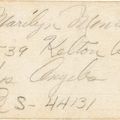 Marilyn Monr
39 Kelton A
os Angeles
S-44131